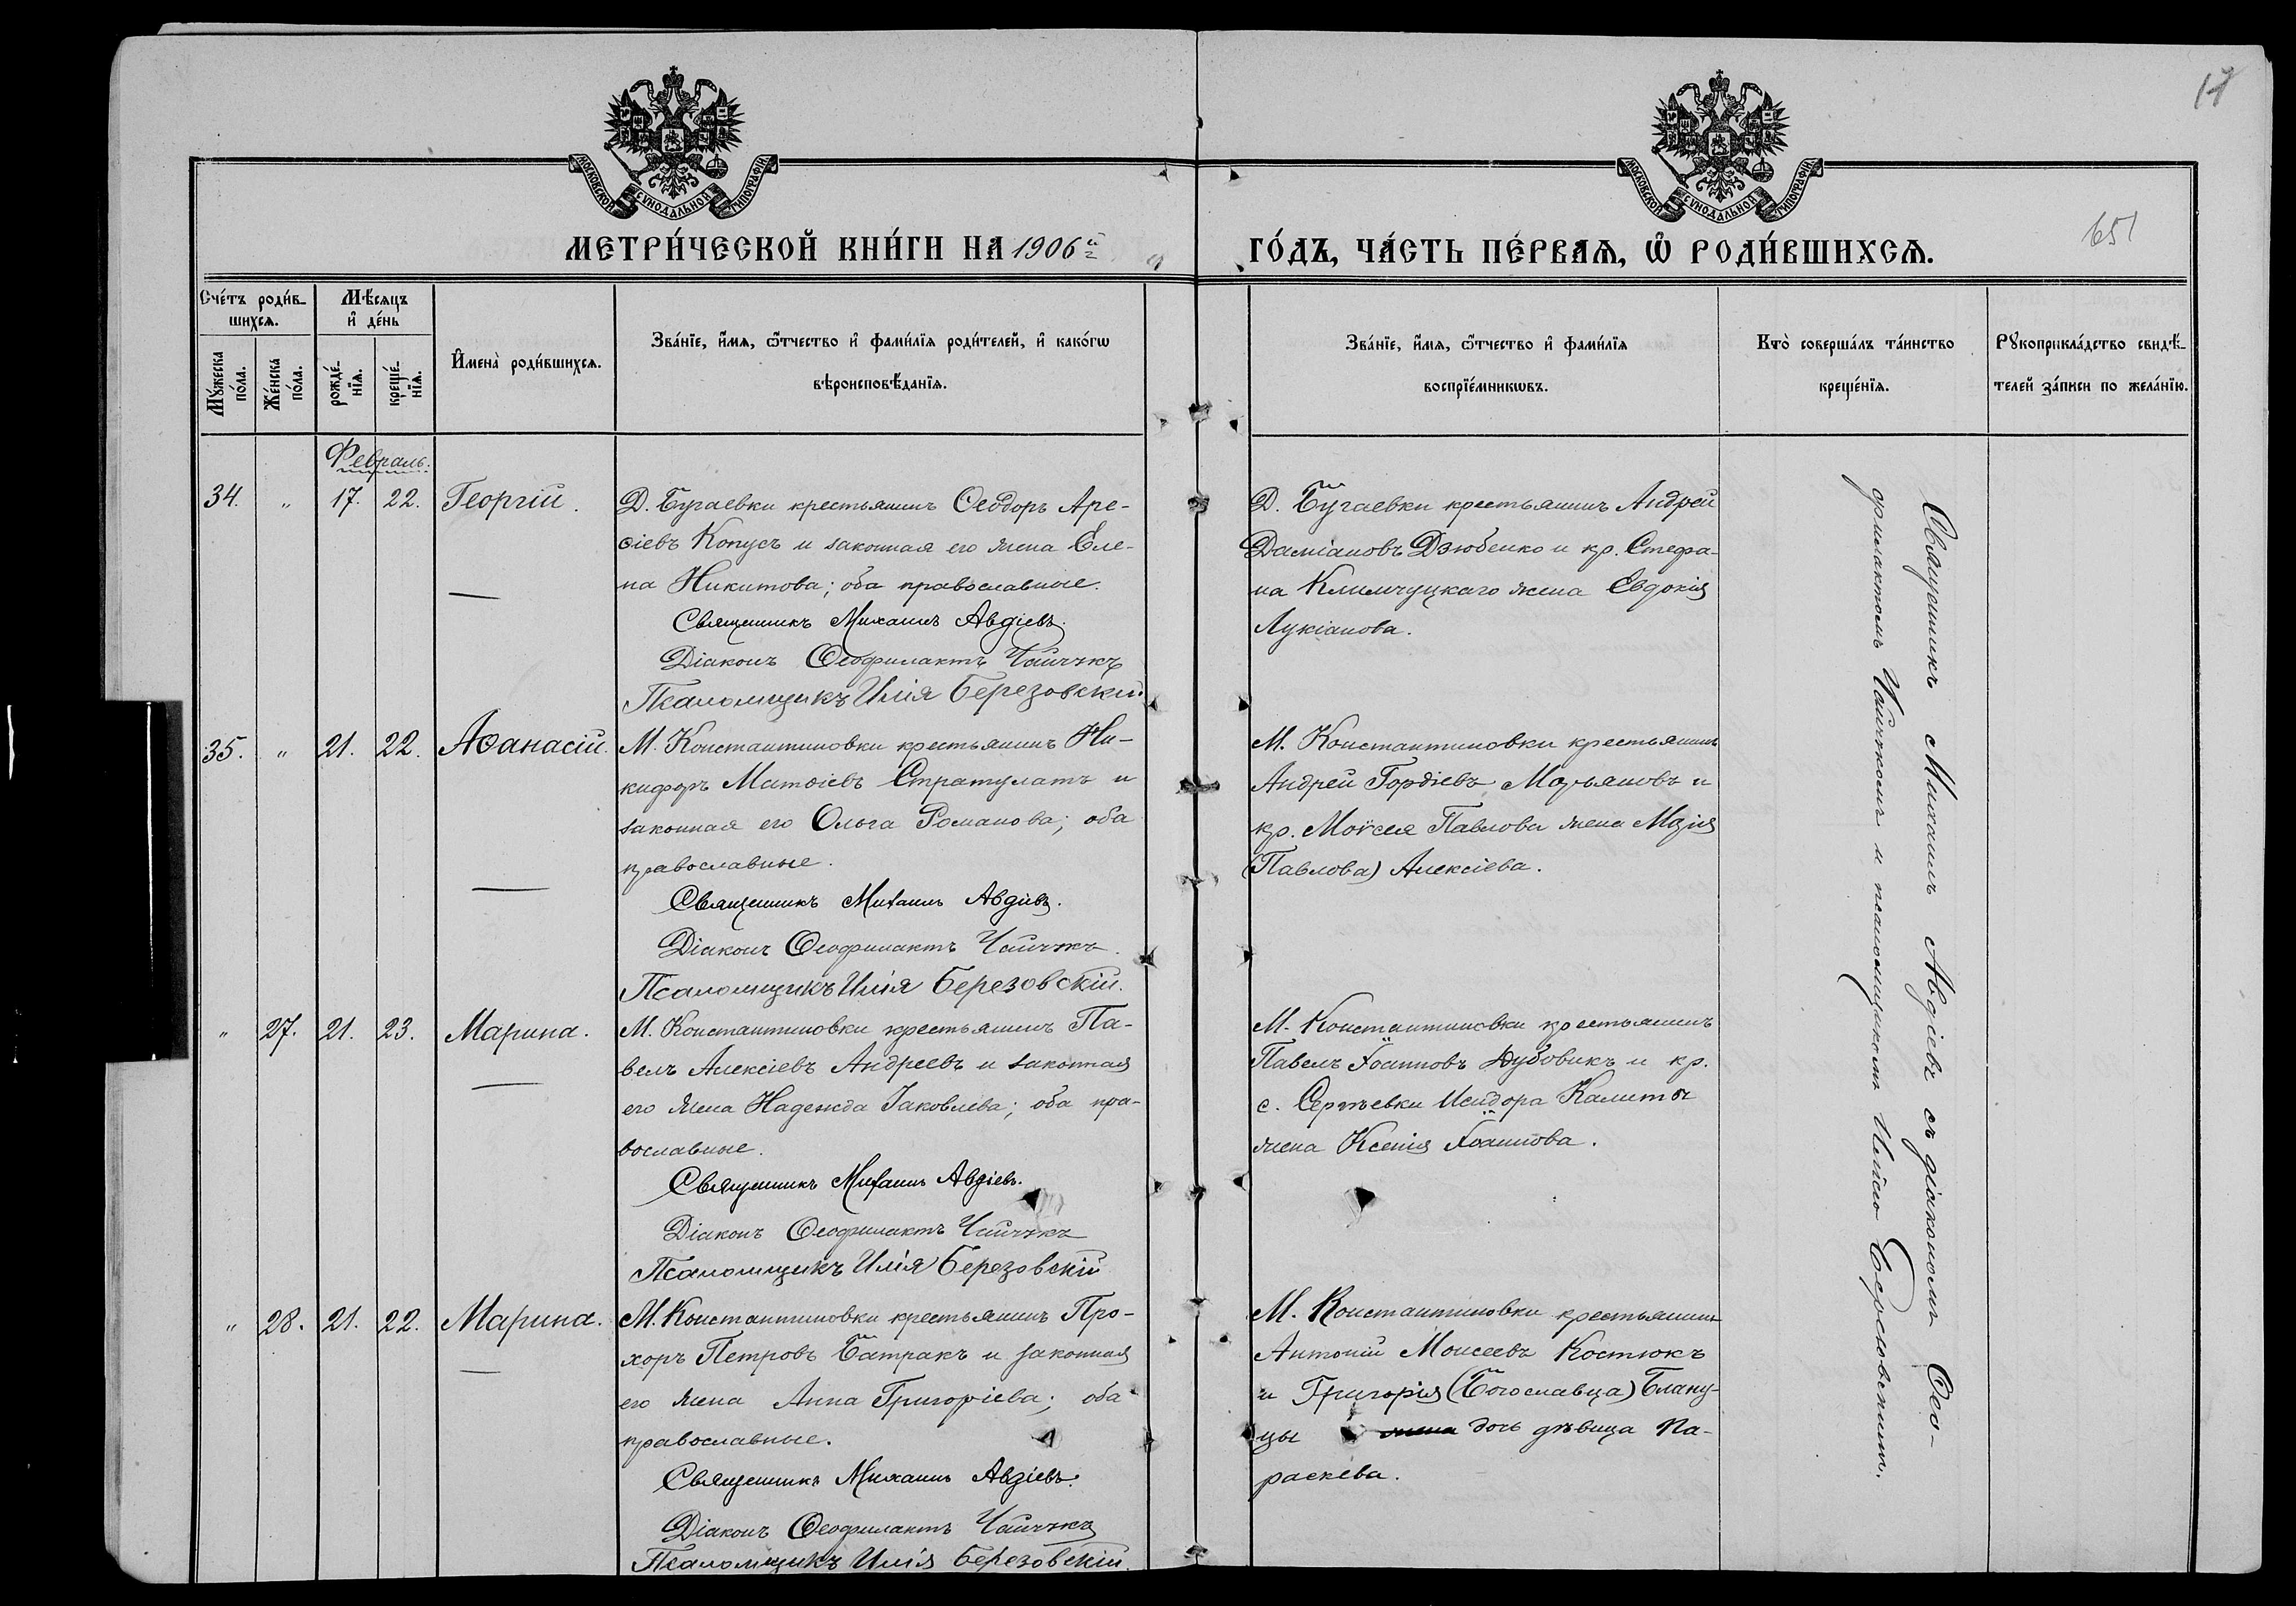 17
651
МОСКОВСКОЙ СѴНОДАЛЬНОЙ ТИПОГРАФІИ
МОСКОВСКОЙ СѴНОДАЛЬНОЙ ТИПОГРАФІИ
МЕТРИ́ЧЕСКОЙ КНИ́ГИ НА 1906й
ГО́ДЪ, ЧА́СТЬ ПЕ́РВАѦ, Ѽ РОДИ́ВШИХСѦ.
Сче́тъ роди́в-
шихсѧ.
Мꙋ́жеска по́ла.
Же́нска по́ла.
Мѣ́сѧцъ
и҆ де́нь
рожде́-
нїѧ.
креще́-
нїѧ.
И҆мена̀ роди́вшихсѧ.
Зва́нїе, и҆́мѧ, ѻ҆́тчество и҆ фами́лїѧ роди́телей, и҆ како́гѡ
вѣроисповѣ́данїѧ.
Зва́нїе, и҆́мѧ, ѻ҆́тчество и҆ фами́лїѧ
воспрїе́мникѡвъ.
Кто̀ соверша́лъ та́инство
креще́нїѧ.
Рꙋкоприкла́дство свидѣ́-
телей за́писи по жела́нїю.
Февраль.
34. " 17. 22. Георгій.
Д. Бугаевки крестьянинъ Ѳеодоръ Аре-
ѳіевъ Копусъ и законная его жена Еле-
на Никитова; оба православные.
Священникъ Михаилъ Авдіевъ.
Діаконъ Ѳеофилактъ
Псаломщикъ Илія Березовскій
Д. Бугаевки крестьянинъ Андрей
Даміановъ Дзюбенко и кр. Стефа-
на Климчуцкаго жена Евдокія
Лукіанова.
35. " 21. 22. Аѳанасій.
М. Константиновки крестьянинъ Ни-
кифоръ Матѳіевъ Стратулатъ и
законная его Ольга Романова; оба
православные.
Священникъ Михаилъ Авдіевъ.
Діаконъ Ѳеофилактъ
Псаломщикъ Илія Березовскій.
М. Константиновки крестьянинъ
Андрей Гордіевъ Марьяновъ и
кр. Моѵсея Павлова жена Марія
(Павлова) Алексіева.
" 27. 21. 23. Марина.
М. Константиновки крестьянинъ Па-
велъ Алексіевъ Андреевъ и законная
его жена Надежда Іаковлева; оба пра-
вославные.
Священникъ Михаилъ Авдіевъ.
Діаконъ Ѳеофилактъ
Псаломщикъ Илія Березовскій
М. Константиновки крестьянинъ
Павелъ Іоанновъ Дубовикъ и кр.
с. Сергѣевки Исидора Калиты
жена Ксенія Іоаннова.
" 28. 21. 22. Марина.
М. Константиновки крестьянинъ Про-
хоръ Петровъ Батракъ и законная
его жена Анна Григоріева; оба
православные.
Священникъ Михаилъ Авдіевъ.
Діаконъ Ѳеофилактъ
Псаломщикъ Илія Березовскій.
М. Константиновки крестьянинъ
Антоній Моисеевъ Костюкъ
и Григорія (Богославца) Блану-
цы жена дочь дѣвица Па-
раскева.
Священникъ Михаилъ Авдіевъ съ діакономъ Ѳео-
филактомъ и псаломщикомъ Иліею Березовскимъ.